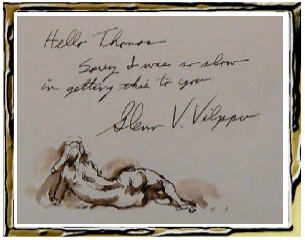 Hello Thomas
Sorry I was so slow
in getting this to you
Glenn V. Vilppu